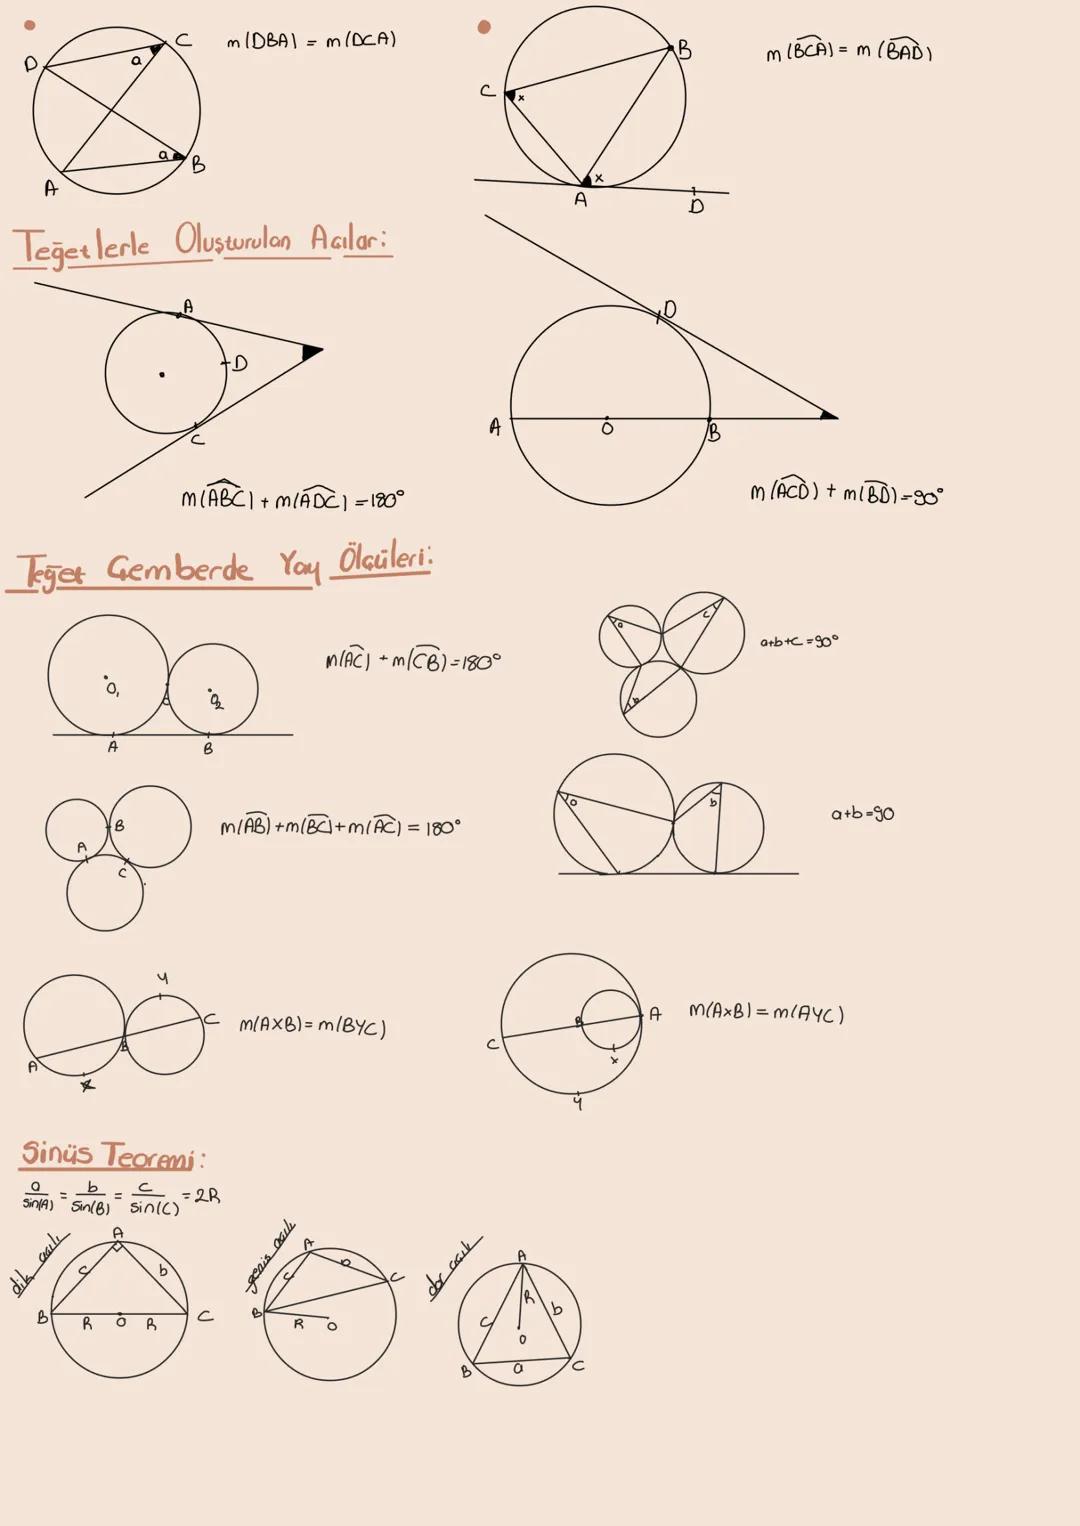 m(DBA) = m(DCA)
D
C
a
a
B
A
m(BCA) = m(BAD)
B
C
x
x
A
D
Teğetlerle Oluşturulan Açılar:
A
D
C
m(ABC) + m(ADC) = 180°
D
A
O
B
m(ACD) + m(BD) = 90°
Teğet Çemberde Yay Ölçüleri:
O₁
O₂
C
A
B
m(AC) + m(CB) = 180°
a
c
b
a+b+c = 90°
B
A
C
m(AB) + m(BC) + m(AC) = 180°
a
b
a+b=90
y
C
B
A
x
m(AXB) = m(BYC)
A
B
C
x
y
m(AxB) = m(AYC)
Sinüs Teoremi:
a/sin(A) = b/sin(B) = c/sin(C) = 2R
dik açılı
A
c
b
B
R
O
R
C
geniş açılı
A
c
b
C
B
R
O
dar açılı
A
R
c
b
O
B
a
C